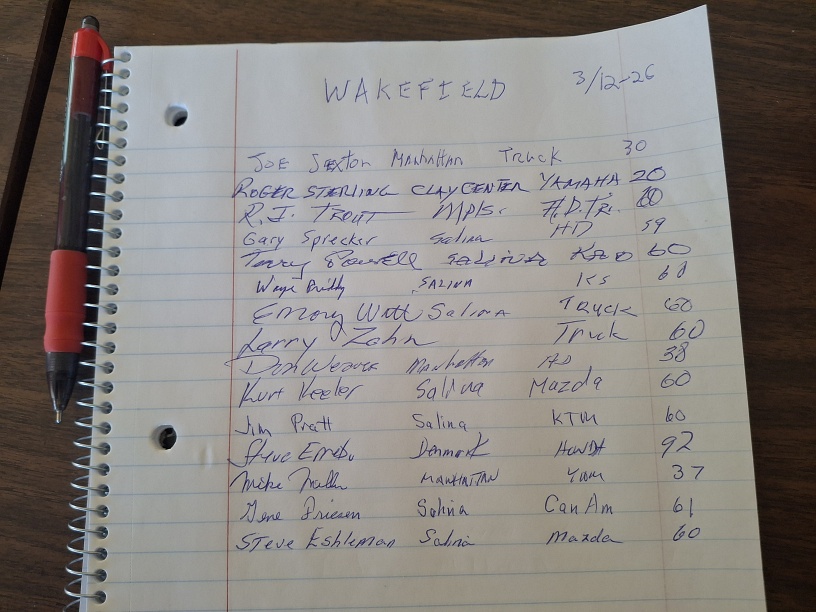 WAKEFIELD 3/12-26
JOE Sexton Manhattan Truck 30
ROGER STERLING CLAY CENTER YAMAHA 20
R.J. TROUT MPLS. H.D. Tri. 20
Gary Sprecker Salina HD 59
Terry Powell SALINA 60
Wayne Priddy SALINA KS 60
Emory Watt Salina TRUCK 60
Larry Zahn Truck 60
Don Weaver Manhattan HD 38
Kurt Keeler Salina Mazda 60
Jim Pratt Salina KTM 60
Steve Denmark 92
Mike MANHATTAN YAM 37
Gene Friesen Salina Can Am 61
Steve Eshleman Salina Mazda 60